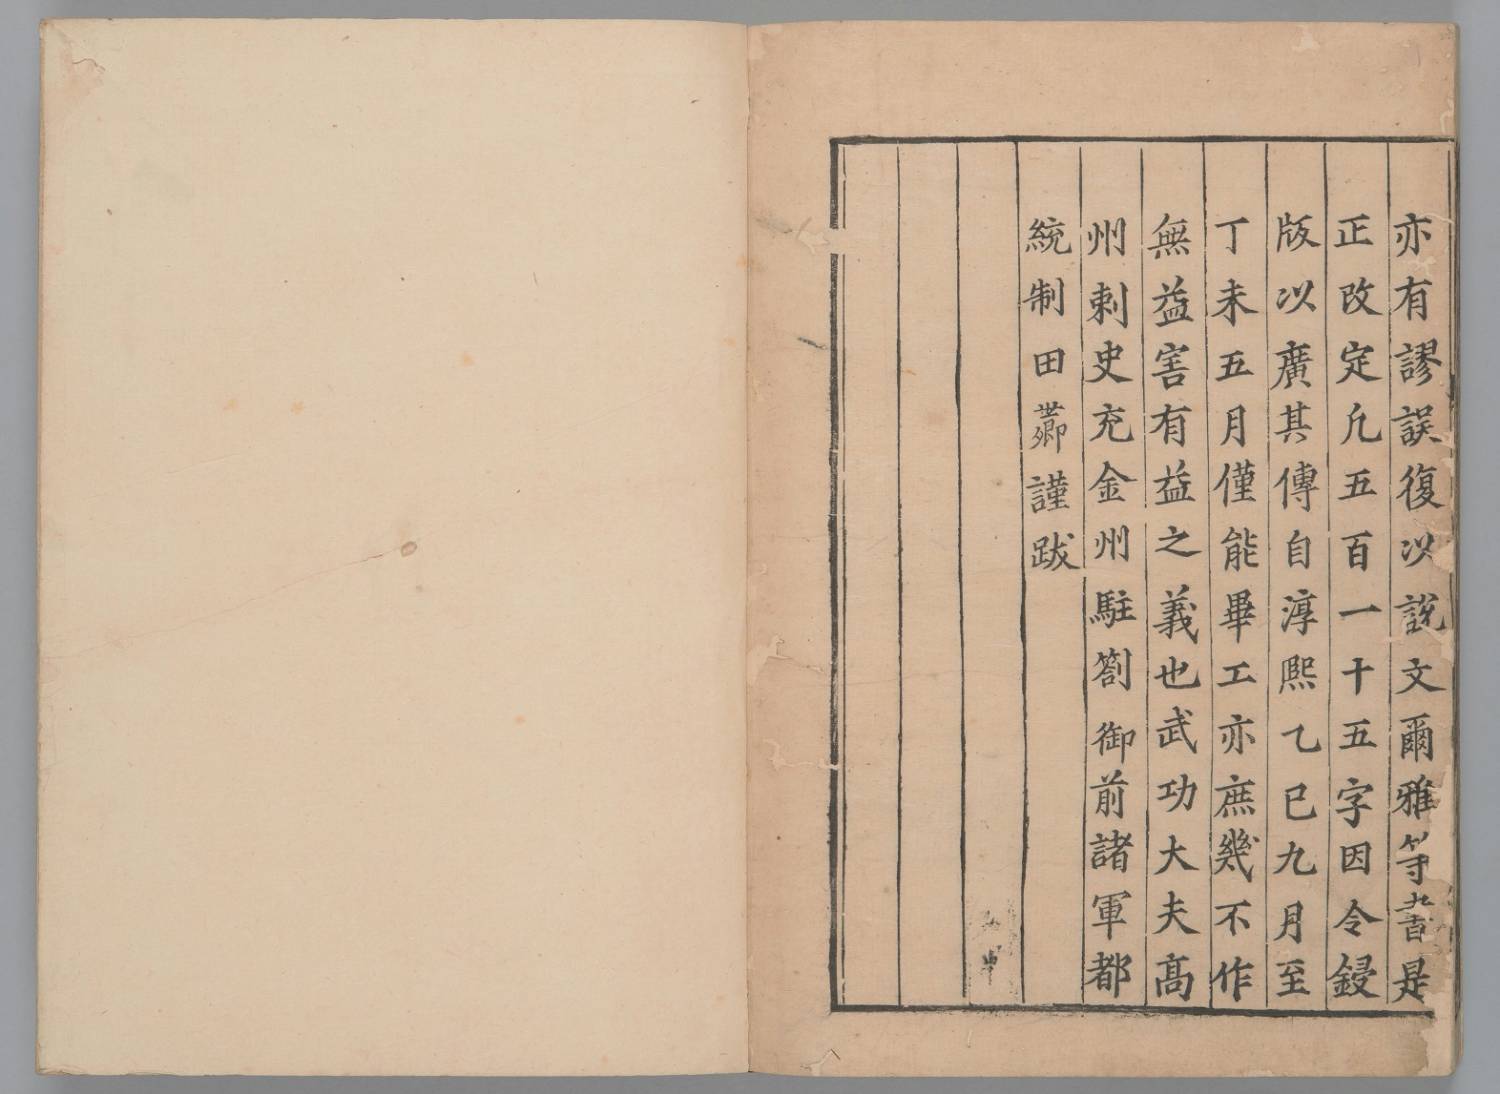 亦有謬誤復以說文爾雅等書是
正改定凢五百一十五字因令鋟
版以廣其傳自淳熙乙巳九月至
丁未五月僅能畢工亦庶幾不作
無益害有益之義也武功大夫高
州刺史充金州駐劄御前諸軍都
統制田 謹跋